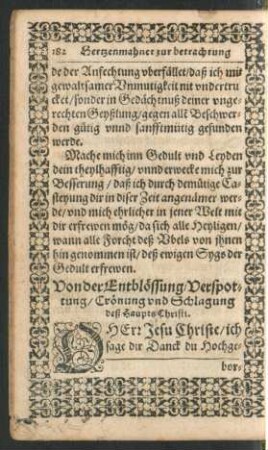 182 Hertzenmahner zur betrachtung
de der Anfechtung vberfället/daß ich mit
gewaltsamer Vnmutigkeit nit vndertru
cket/sonder in Gedächtnuß deiner vnge-
rechten Geyßlung/gegen allẽ Beschwer-
den gütig vnnd sanfftmütig gefunden
werde.
Mache mich inn Gedult vnd Leyden
dein theylhafftig/ vnnd erwecke mich zur
Besserung / daß ich durch demütige Ca-
steyung dir in diser Zeit angenämer wer-
de/vnd mich ehrlicher in jener Welt mit
dir erfrewen mög/da sich alle Heyligen/
wann alle Forcht deß Vbels von jhnen
hin genommen ist/ deß ewigen Sygs der
Gedult erfrewen.
Von der Entblössung/Verspot-
tung/Crönung vnd Schlagung
deß Haupts Christi.
O HErr Jesu Christe/ich
sage dir Danck du Hochge-
bor-